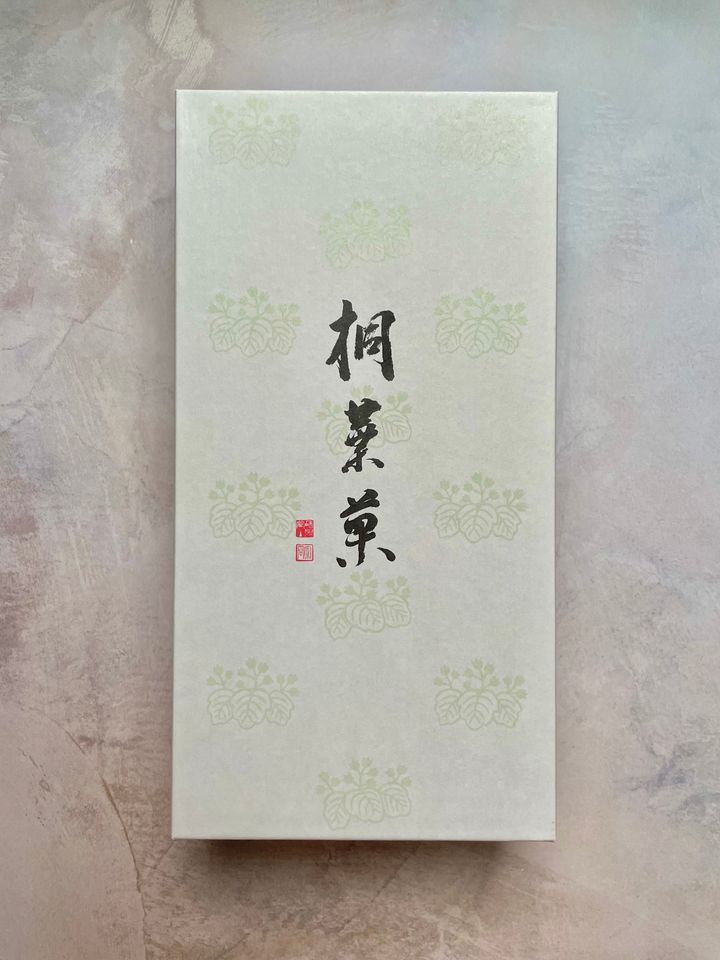 桐葉菓